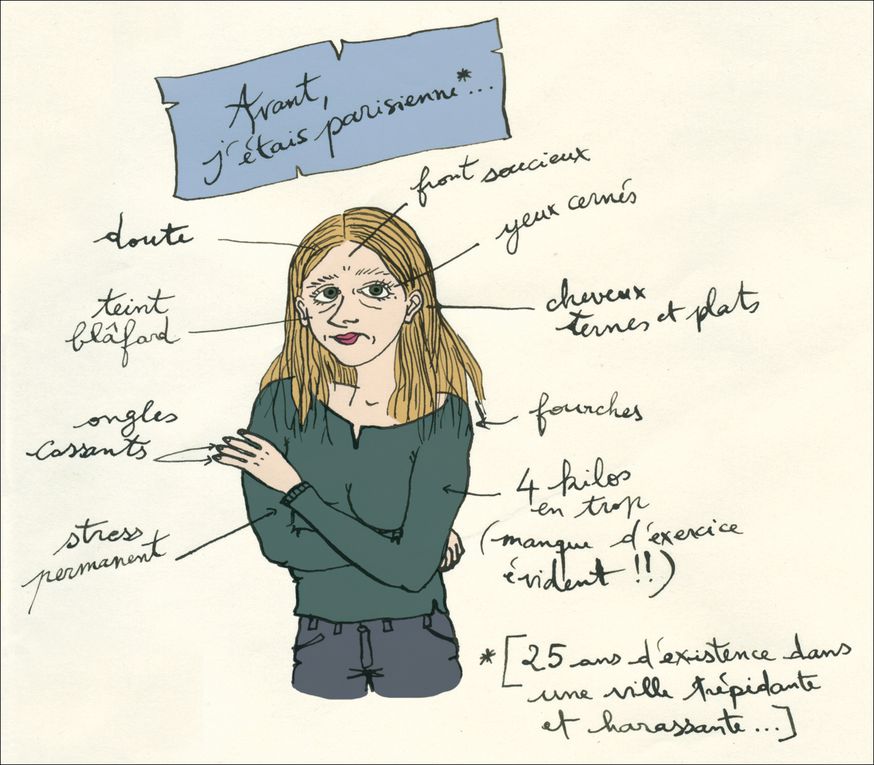 Avant,
j'étais parisienne*...
front soucieux
yeux cernés
doute
cheveux
ternes et plats
teint
blâfard
fourches
ongles
cassants
4 kilos
en trop
(manque d'exercice
évident !!)
stress
permanent
*[25 ans d'existence dans
une ville trépidante
et harassante...]